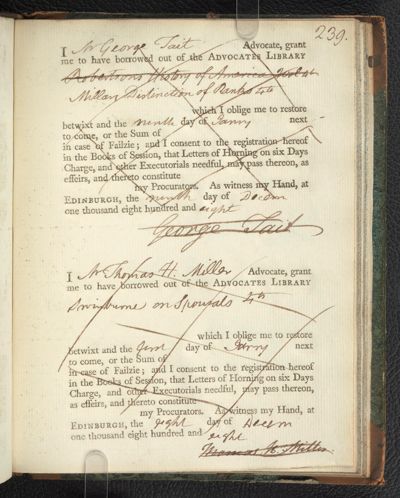 239.
I Mr George Tait Advocate, grant
me to have borrowed out of the ADVOCATES LIBRARY
Robertson's History of America
Millar's Distinction of Ranks 4to
which I oblige me to restore
betwixt and the ninth day of Janry next
to come, or the Sum of
in case of Failzie; and I consent to the registration hereof
in the Books of Session, that Letters of Horning on six Days
Charge, and other Executorials needful, may pass thereon, as
effeirs, and thereto constitute
my Procurators. As witness my Hand, at
EDINBURGH, the ninth day of Decem
one thousand eight hundred and eight
George Tait
I Mr Thomas H. Miller Advocate, grant
me to have borrowed out of the ADVOCATES LIBRARY
Swinburne on Spousals 4to
which I oblige me to restore
betwixt and the day of Janry next
to come, or the Sum of
in case of Failzie; and I consent to the registration hereof
in the Books of Session, that Letters of Horning on six Days
Charge, and other Executorials needful, may pass thereon,
as effeirs, and thereto constitute
my Procurators. As witness my Hand, at
EDINBURGH, the eight day of Decem
one thousand eight hundred and eight
Thomas H. Miller